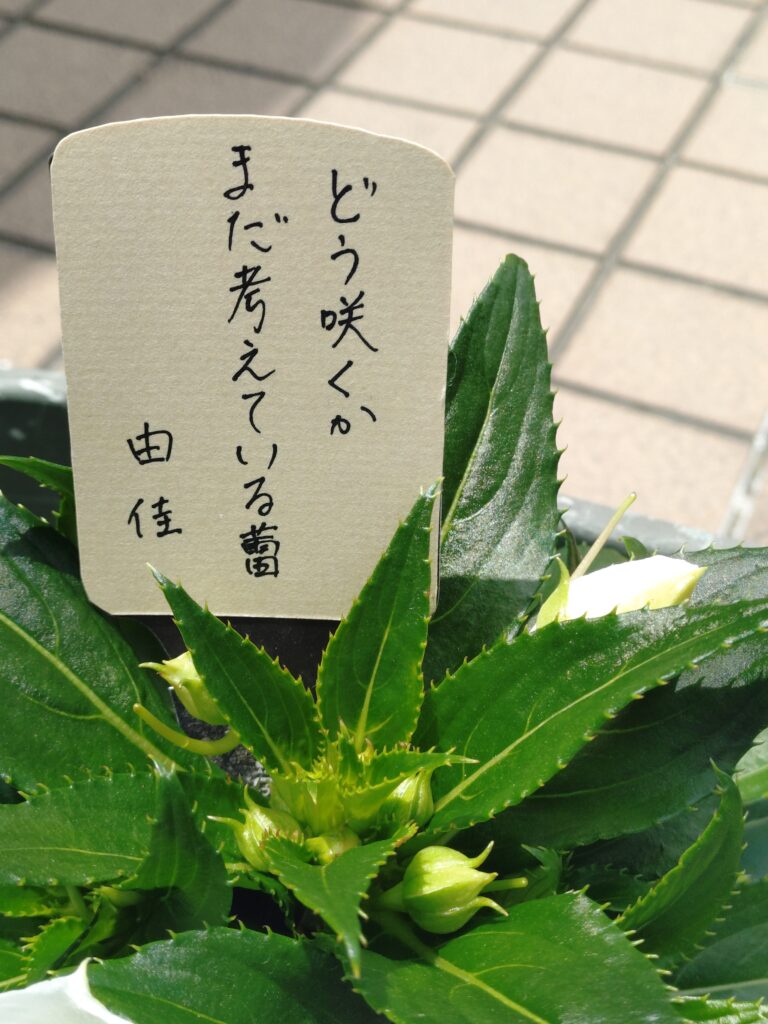 どう咲くか
まだ考えている蕾
由佳